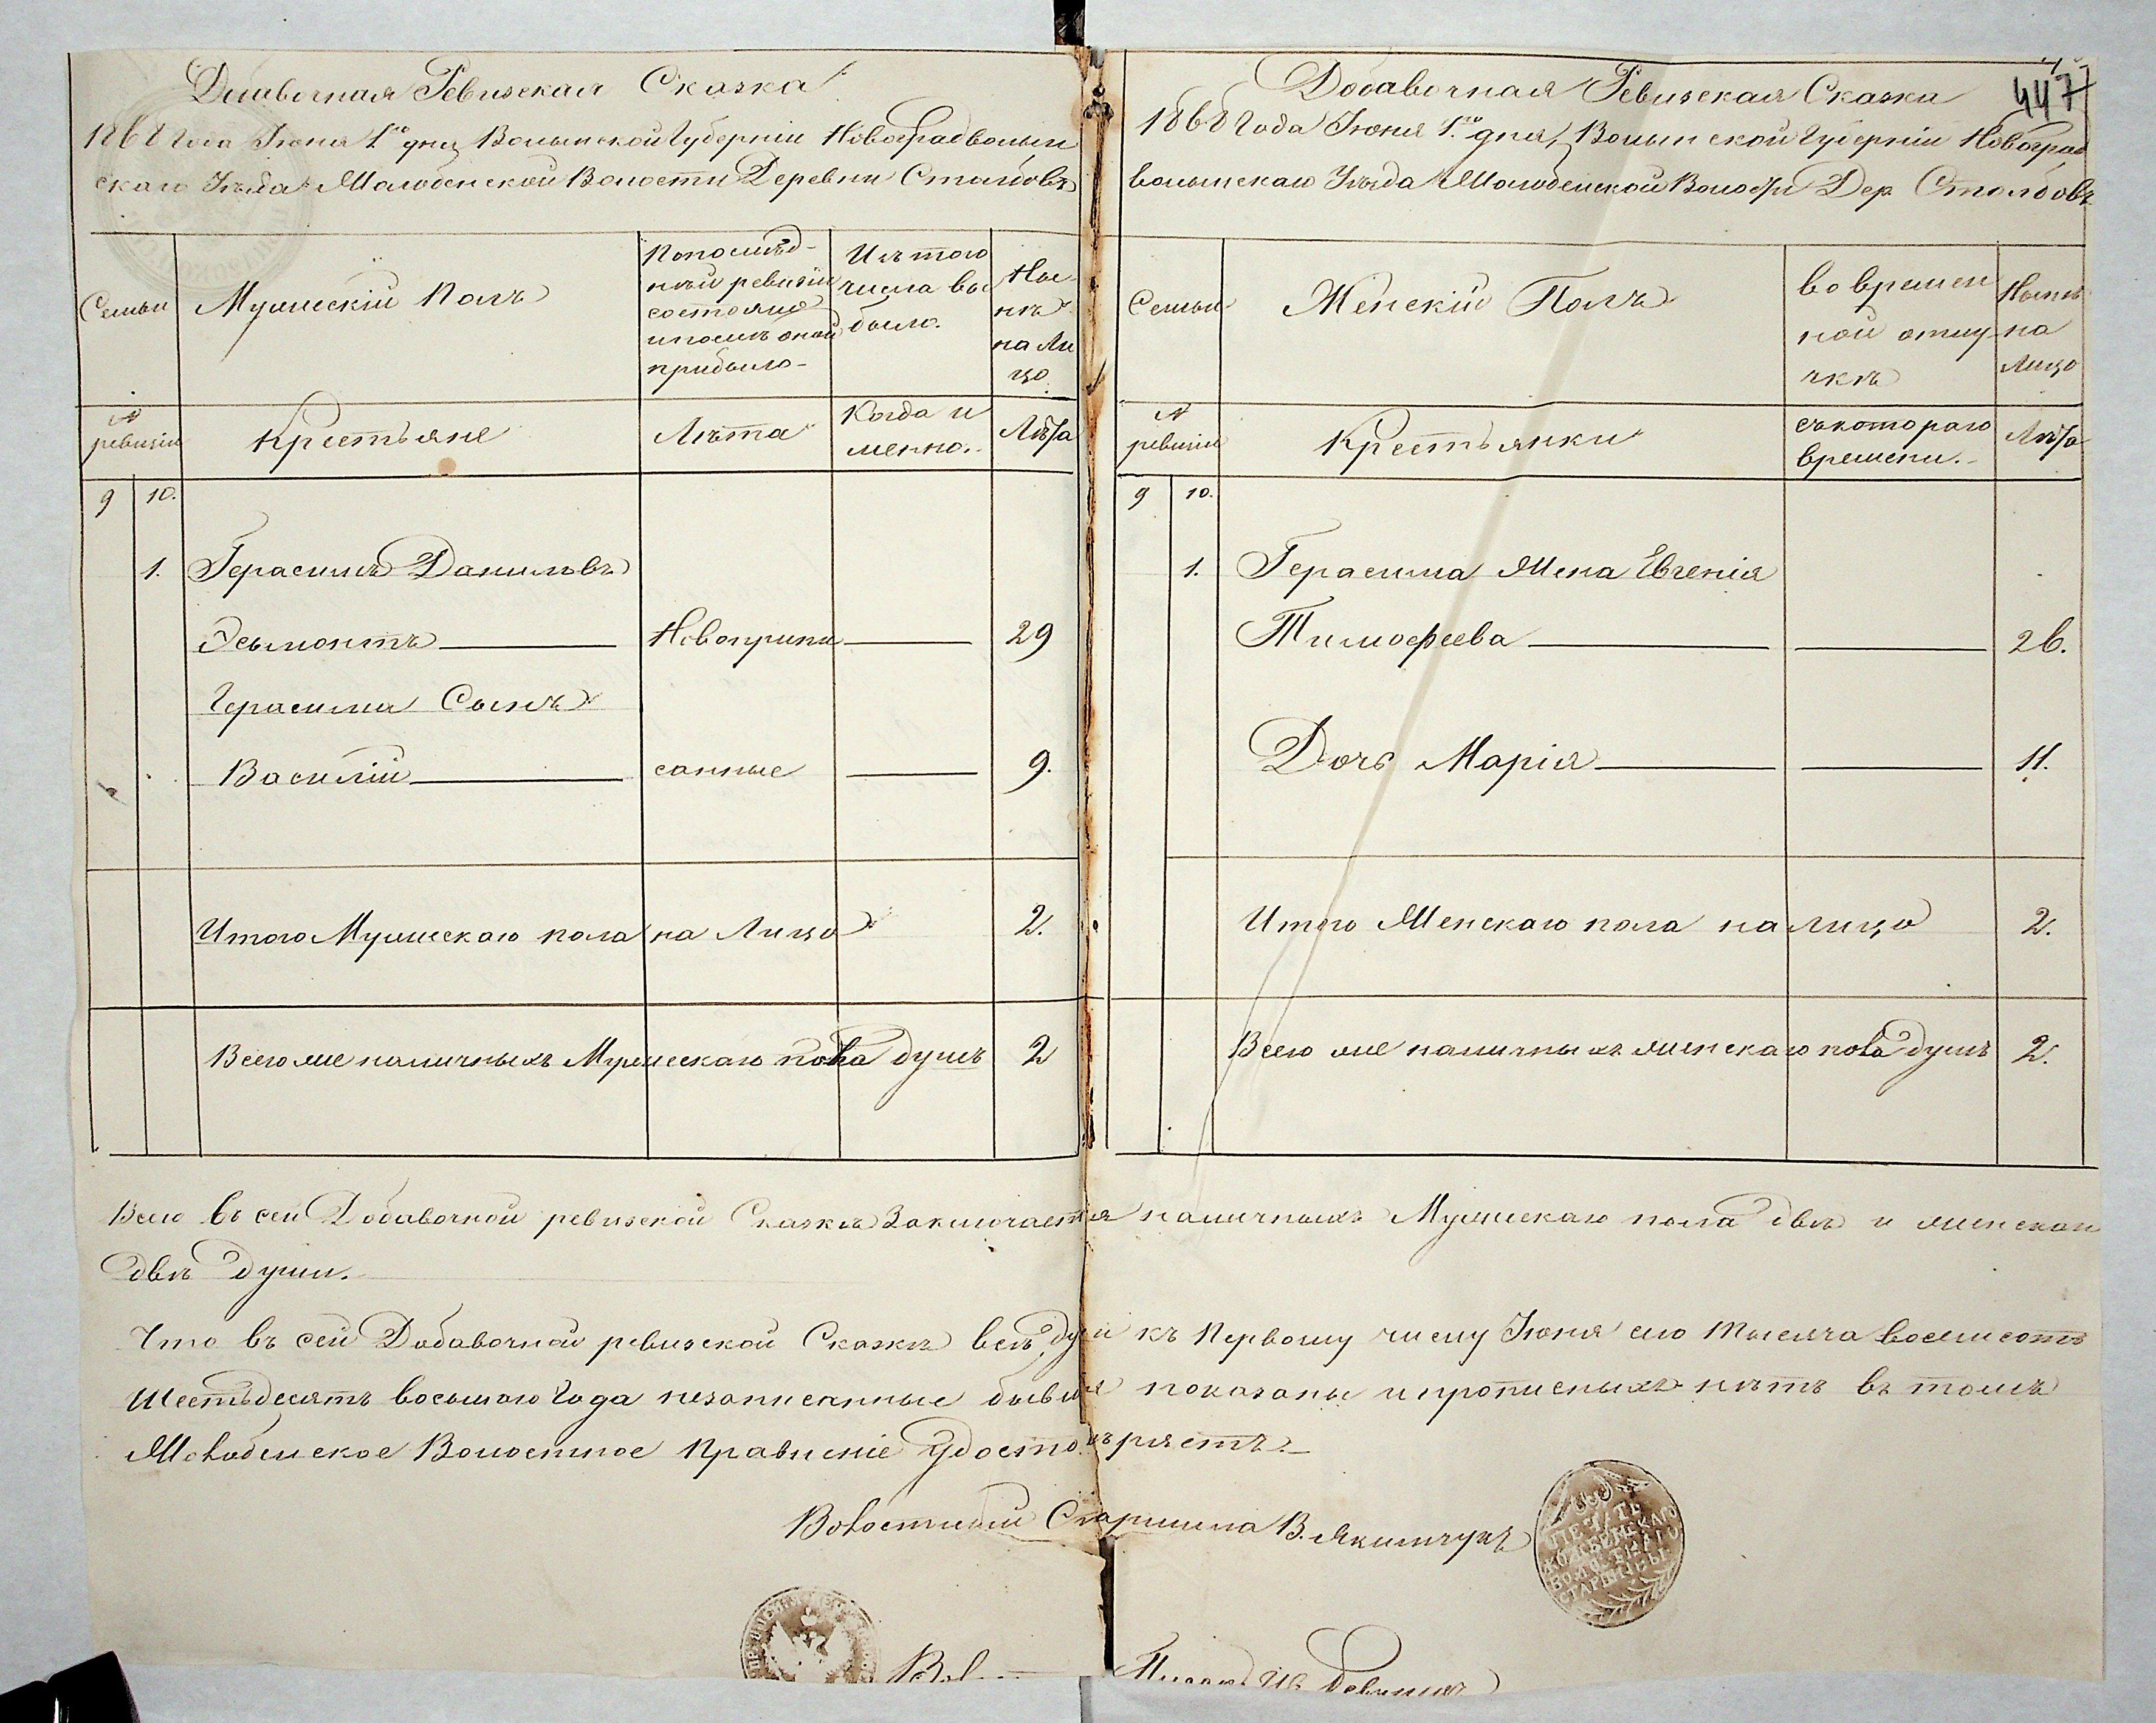 Добавочная Ревизская Сказка
1868 года Июня 1го дня Волынской Губерніи Новоградволын
скаго Уѣзда Молобенской Волости Деревни Столбовъ
Семьи
Мужескій Полъ
Попослѣд-
ней ревизіи
состояло
ипослѣ оной
прибыло-
Изъ того
числа вы
было.
Ны-
нѣ
на Ли
цо
№
ревизіи
Крестьяне
Лѣта
Когда и
менно.
Лѣта
9 10.
1. Герасимъ Даниловъ
Эсьмонтъ Новоприпи 29
Герасима Сынъ
Василій санные 9.
Итого Мужескаго пола на Лицо 2.
Всего же наличныхъ Мужескаго пола душъ 2
447
Добавочная Ревизская Сказка
1868 Года Июня 1.го дня, Волынской Губерніи Новоград
волынскаго Уѣзда Молобенской Волости Дер. Столбовъ
Семьи
Женскій Полъ
во времен
ной отлу
чкѣ
Нынѣ
на
Лицо
№
ревизіи
Крестьянки
съкотораго
времени.-
Лѣта
9 10.
1. Герасима Жена Евгенія
Тимофеева 26.
Дочь Марія 11.
Итого Женскаго пола налицо 2.
Всего же наличныхъ женскаго пола душъ 2.
Всего въ сей Добавочной ревизской Сказкѣ Заключается наличныхъ Мужескаго пола двѣ и женскаго
двѣ души.
Что въ сей Добавочной ревизской Сказкѣ всѣ души къ Первому числу Июня сего тысяча восемсотъ
Шестьдесятъ восьмаго Года незаписанные бывшія показаны ипрописныхъ нѣтъ въ томъ
Молобенское Волостное Правленіе Удостовѣряетъ.
Волостный Старшина В. Якимчукъ
ПЕЧАТЬ
ВОЛОСТНАГО
СТАРШИНЫ
Писарь Ив.